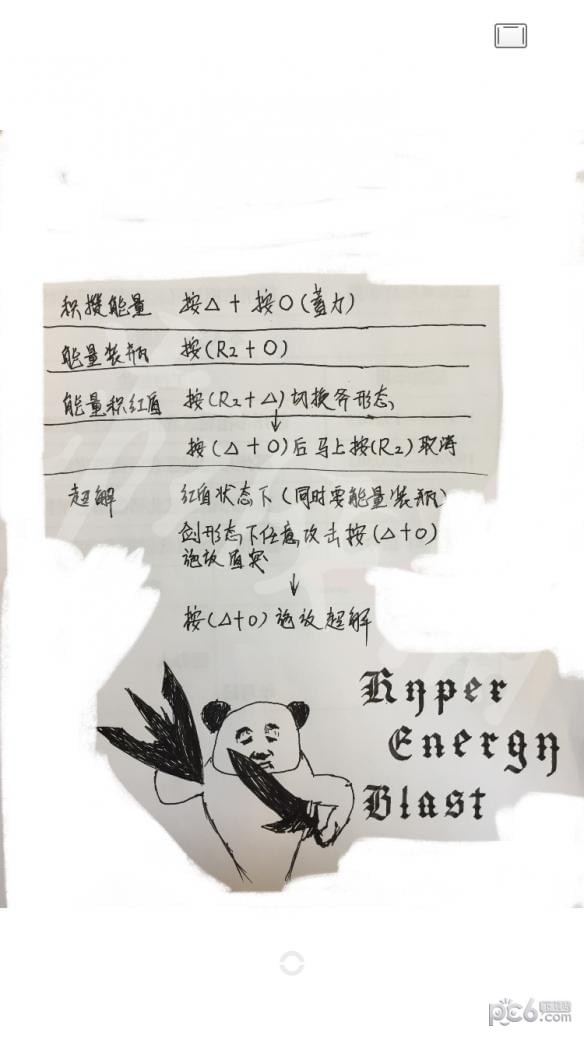 积攒能量 按△ + 按O(蓄力)
能量装瓶 按(R2+O)
能量积红盾 按(R2+△)切换斧形态
↓
按(△+O)后马上按(R2)取消
超解 红盾状态下(同时要能量装瓶)
剑形态下任意攻击按(△+O)
施放盾突
↓
按(△+O)施放超解
Hyper
Energy
Blast
pc6.com